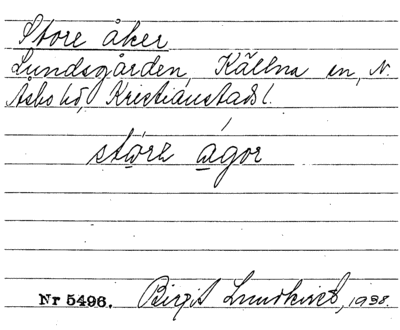 Store åker
Lundsgården, Källna sn, N.
Åsbo hd, Kristianstads l.
Nr 5496. Birgit Lundkvist, 1938.